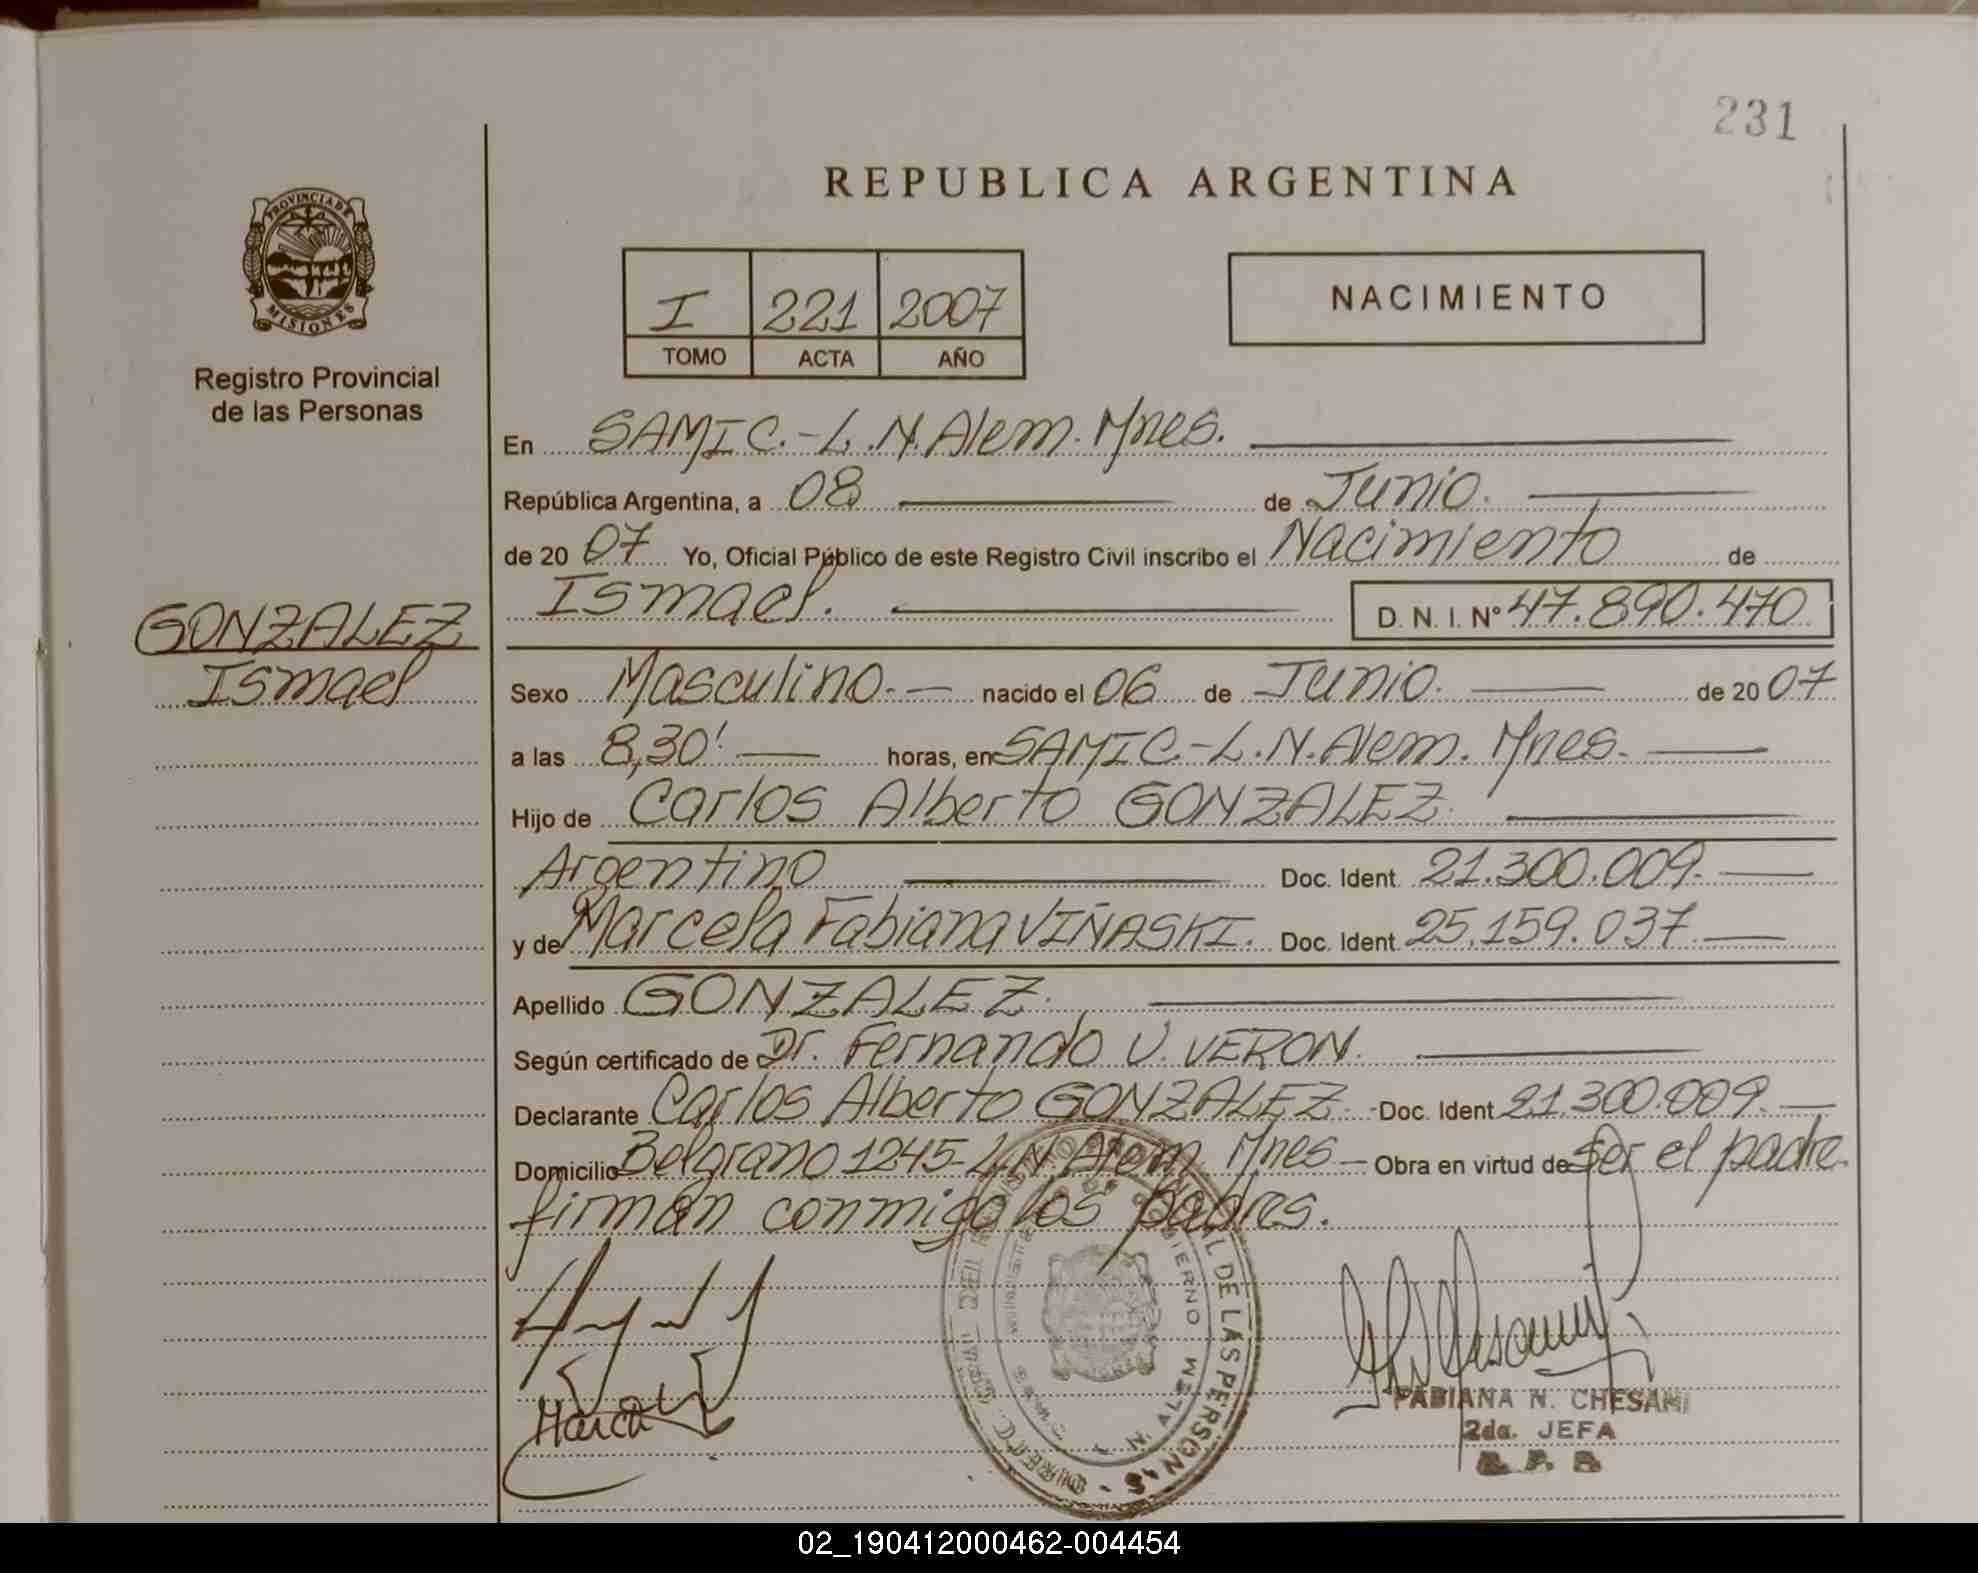 231
REPUBLICA ARGENTINA
PROVINCIA DE
MISIONES
Registro Provincial
de las Personas
I 221 2007
TOMO ACTA AÑO
NACIMIENTO
En SAMIC.-L.N.Alem.Mnes.
República Argentina, a 08 de Junio.
de 2007 Yo, Oficial Público de este Registro Civil inscribo el Nacimiento de
Ismael. D. N. I. Nº 47.890.470
GONZALEZ
Ismael
Sexo Masculino.- nacido el 06 de Junio. de 2007
a las 8,30' horas, en SAMIC.-L.N.Alem. Mnes.
Hijo de Carlos Alberto GONZALEZ.
Argentino Doc. Ident. 21.300.009.
y de Marcela Fabiana VIÑASKI. Doc. Ident. 25.159.037.
Apellido GONZALEZ.
Según certificado de Dr. Fernando U. VERON.
Declarante Carlos Alberto GONZALEZ.- Doc. Ident. 21.300.009.
Domicilio Belgrano 1245-L.N.Alem. Mnes - Obra en virtud de Ser el padre.
firman conmigo los padres.
DE LAS PERSONAS
FABIANA N. CHESANI
2da. JEFA
R. P. P.
02_190412000462-004454